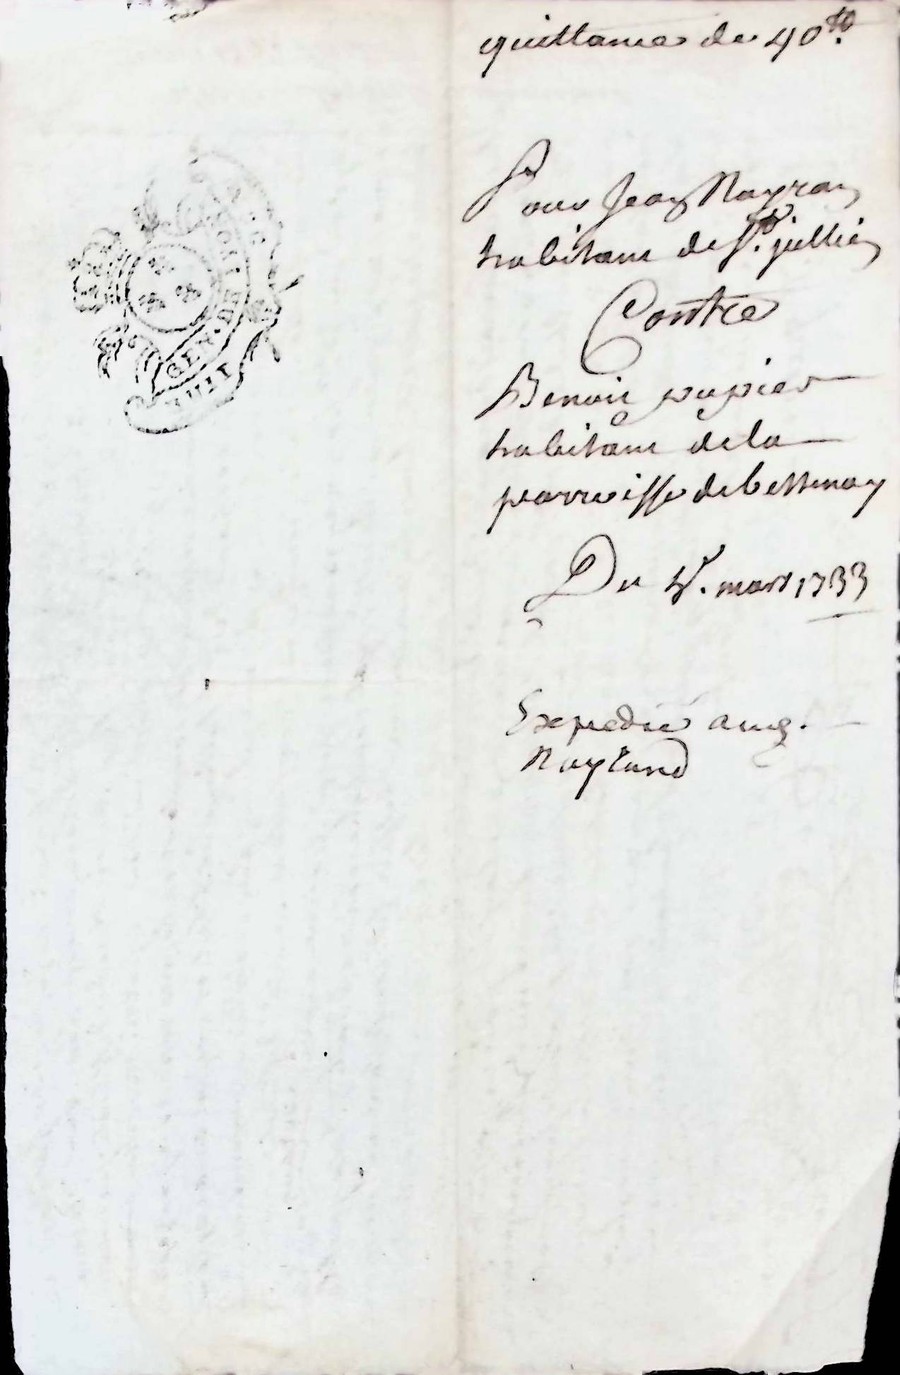 quittance de 40 ₶.
Pour Jean Nayran
habitant de St. jullien
Contre
Benoit pupier
habitant de la
parroisse de bessenay
Du 4e. mars 1733
Expedié aud.
GEN. DE
HUIT